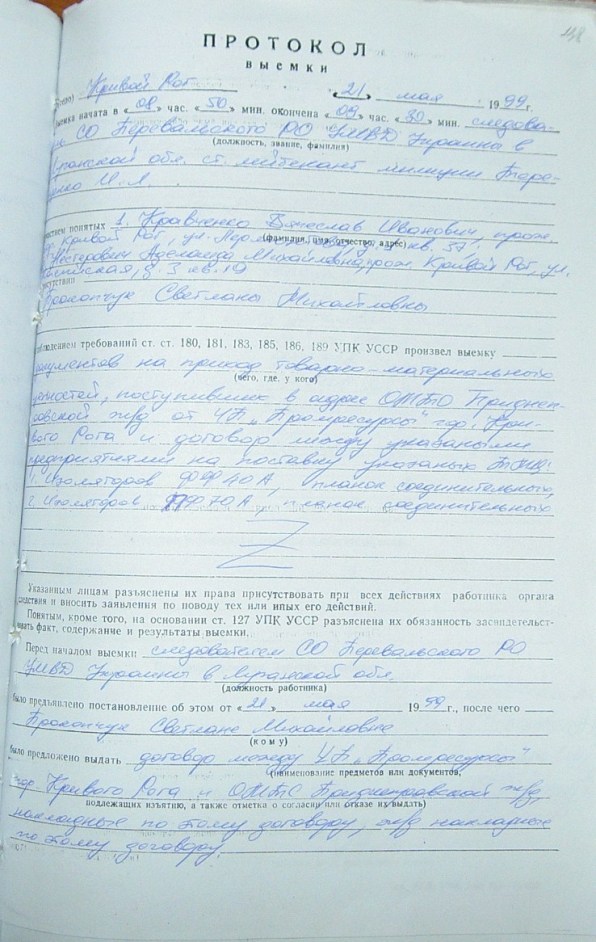 48
ПРОТОКОЛ
выемки
Кривой Рог «21» мая 1999 г.
начата в «08» час. «50» мин. окончена «09» час. «30» мин. следова-
СО Перевальского РО УМВД Украины в
(должность, звание, фамилия)
Луганской обл. ст. лейтенант милиции
И.А.
понятых 1. Кравченко Вячеслав Иванович, прож.
(фамилия, имя, отчество, адрес)
Кривой Рог, ул. кв. 37,
Нестерович Аделаида Михайловна, прож. Кривой Рог, ул.
д. 3 кв. 19
Прокопчук Светланы Михайловны
требований ст. ст. 180, 181, 183, 185, 186, 189 УПК УССР произвел выемку
документов на приход товарно-материальных
(чего, где, у кого)
ценностей, поступивших в адрес ОМТО Приднеп-
ровской ж/д от ЧП „Промресурсы" гор. Кри-
вого Рога и договор между указаными
предприятиями на поставку указаных ТМЦ:
1. Изоляторов ФФ 40А, планок соединительных,
2. Изоляторов ПФ 70А, планок соединительных
Указанным лицам разъяснены их права присутствовать при всех действиях работника органа
следствия и вносить заявления по поводу тех или иных его действий.
Понятым, кроме того, на основании ст. 127 УПК УССР разъяснена их обязанность засвидетельст-
вовать факт, содержание и результаты выемки.
Перед началом выемки следователем СО Перевальского РО
УМВД Украины в Луганской обл.
(должность работника)
было предъявлено постановление об этом от «21» мая 1999 г., после чего
Прокопчук Светлане Михайловне
(кому)
было предложено выдать договор между ЧП „Промресурсы"
(наименование предметов или документов,
гор. Кривого Рога и ОМТС Приднепровской ж/д,
подлежащих изъятию, а также отметка о согласии или отказе их выдать)
накладные по этому договору, ж/д накладные
по этому договору.